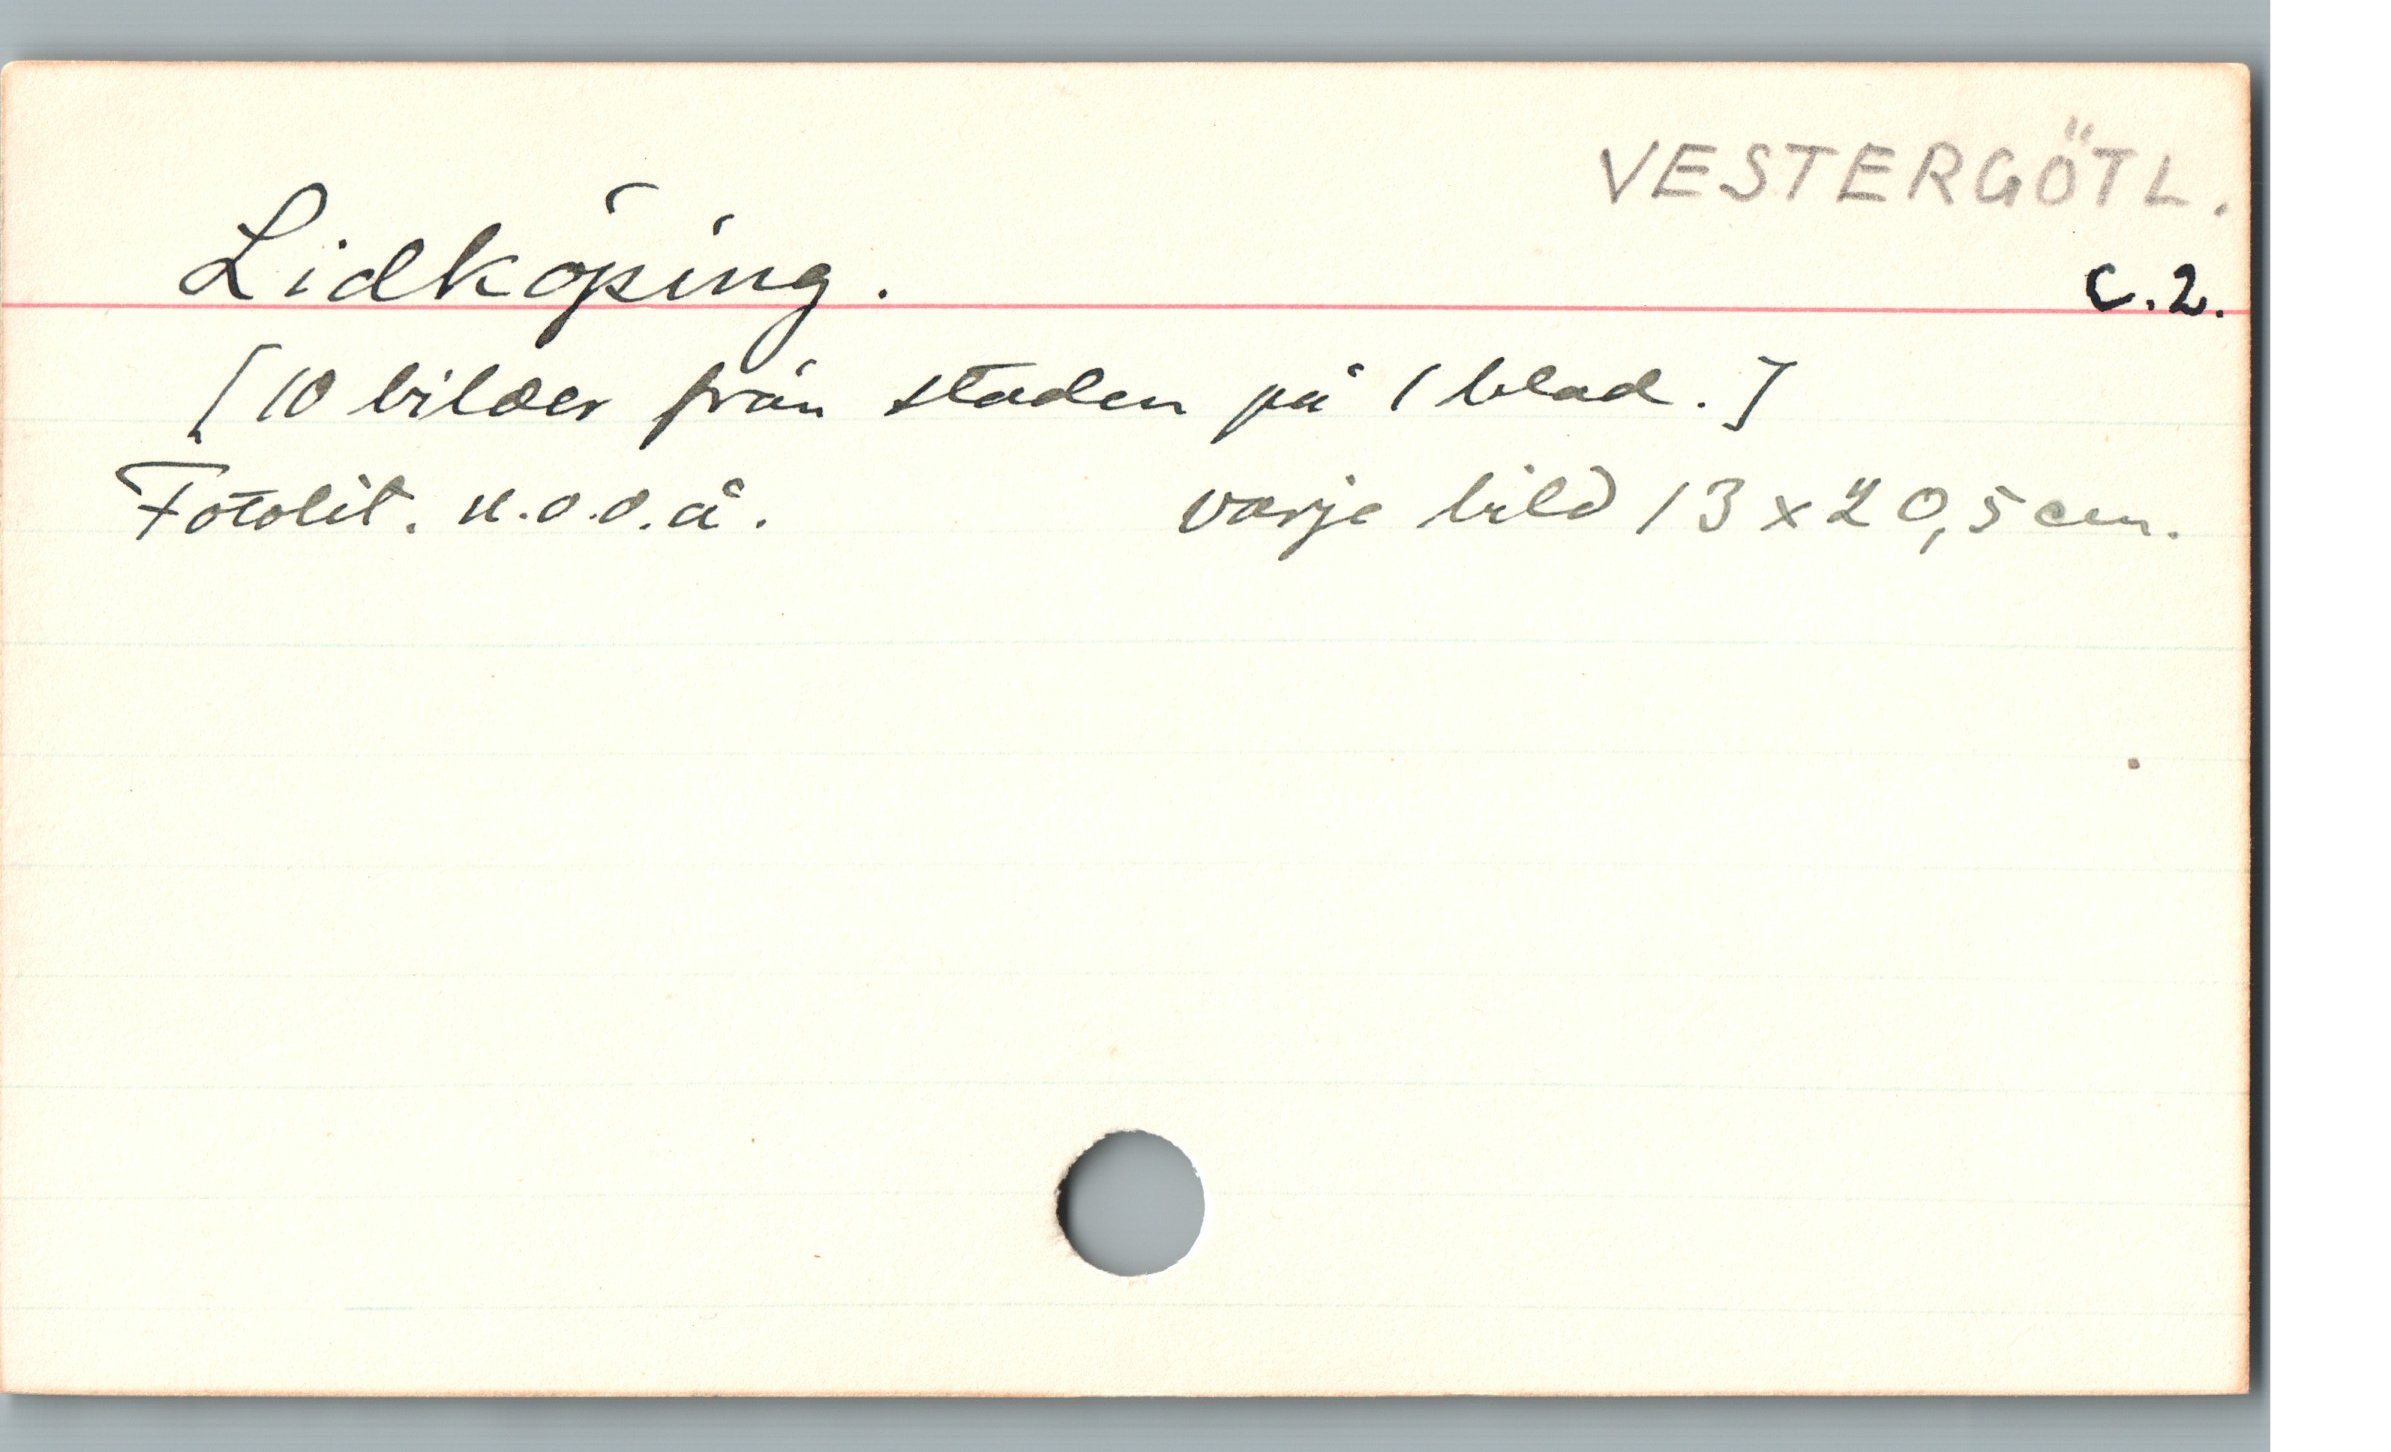 VESTERGÖTL.
Lidköping. C.2.
[10 bilder från staden på 1 blad.]
Fotolit. u.o.o.å. varje bild 13 x 20,5 cm.